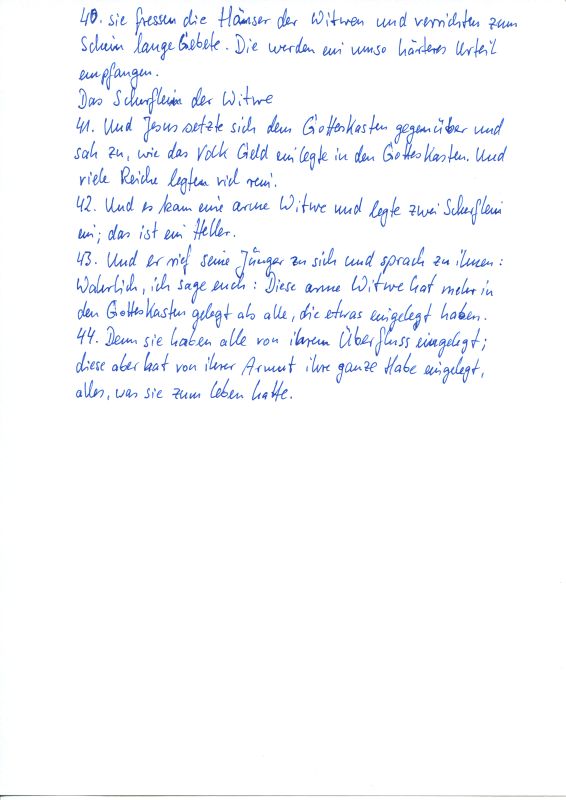 40. sie fressen die Häuser der Witwen und verrichten zum
Schein lange Gebete. Die werden ein umso härteres Urteil
empfangen.
Das Scherflein der Witwe
41. Und Jesus setzte sich dem Gotteskasten gegenüber und
sah zu, wie das Volk Geld einlegte in den Gotteskasten. Und
viele Reiche legten viel rein.
42. Und es kam eine arme Witwe und legte zwei Scherflein
ein; das ist ein Heller.
43. Und er rief seine Jünger zu sich und sprach zu ihnen:
Wahrlich, ich sage euch: Diese arme Witwe hat mehr in
den Gotteskasten gelegt als alle, die etwas eingelegt haben.
44. Denn sie haben alle von ihrem Überfluss eingelegt;
diese aber hat von ihrer Armut ihre ganze Habe eingelegt,
alles, was sie zum leben hatte.